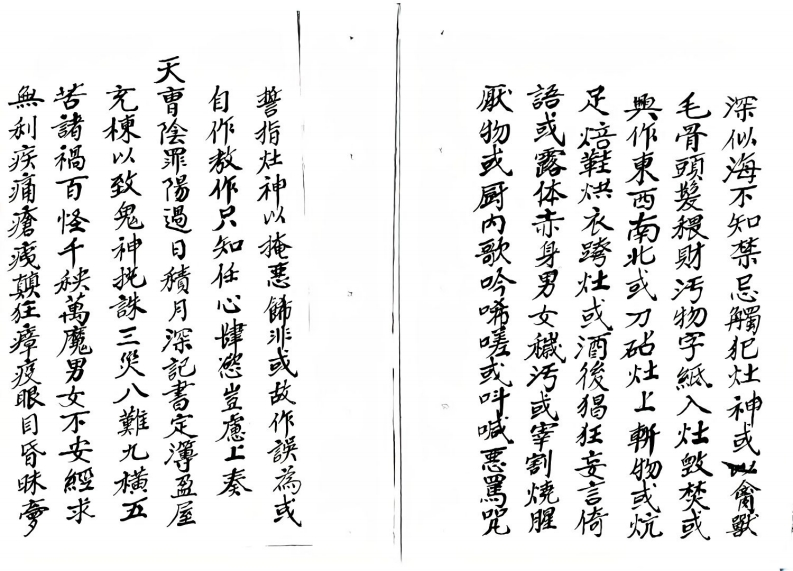 深似海不知禁忌觸犯灶神或以禽獸
毛骨頭髮穢財汚物字紙入灶毀焚或
興作東西南北或刀砧灶上斬物或炕
足焙鞋烘衣跨灶或酒後猖狂妄言倚
語或露体赤身男女穢汚或宰割燒腥
厭物或厨内歌吟唏嗟或呌喊惡罵咒
誓指灶神以掩惡餙非或故作誤為或
自作教作只知任心肆慾豈慮上奏
天曹陰罪陽過日積月深記書定薄盈屋
充棟以致鬼神抚誅三災八難九横五
苦諸禍百怪千秧萬魔男女不安經求
無利疾痛瘡痍顛狂瘴疫眼目昏昧夢